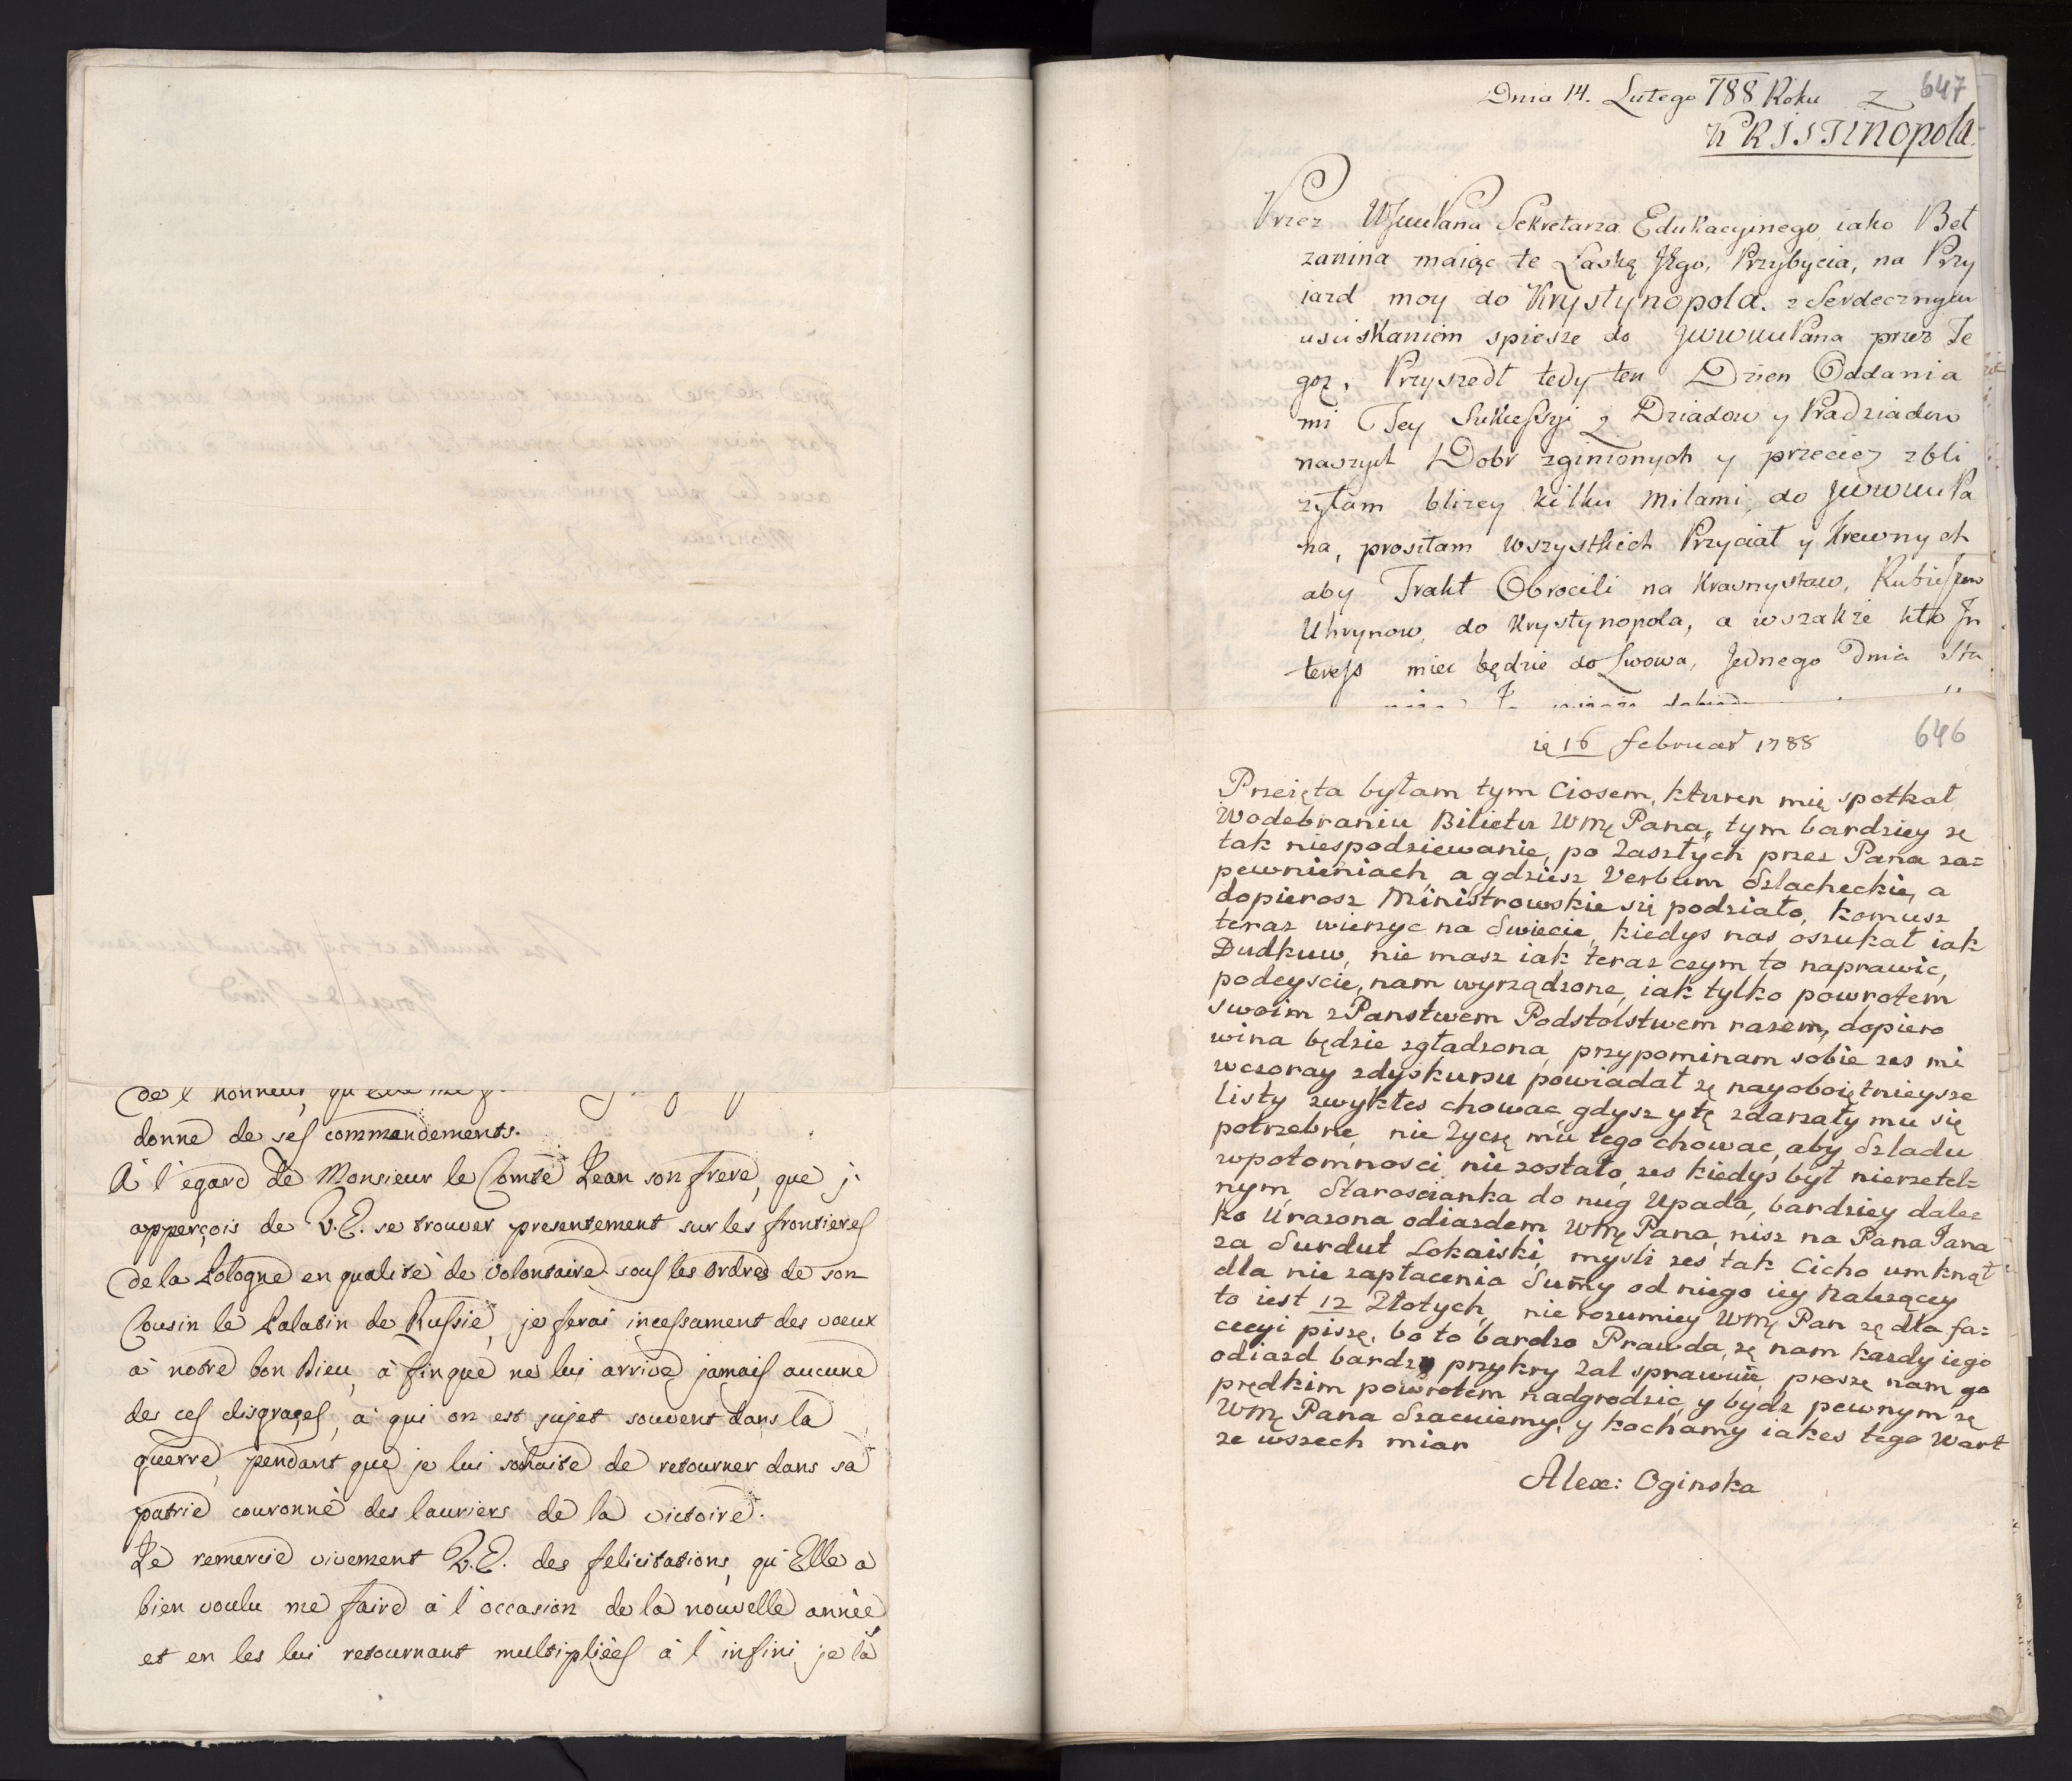 donne de ses commandements.
À l'egard de Monsieur le Comte Jean son frere, que j'
apperçois de V.E. se trouver presentement sur les frontieres
de la Pologne en qualité de volontaire sous les ordres de son
Cousin le Palatin de Russie, je ferai incessament des voeux
à notre bon Dieu, à fin que ne lui arrive jamais aucune
des ces disgraçes, à qui on est sujet souvent dans la
guerre, pendant que je lui sohaite de retourner dans sa
patrie couronné des lauriers de la victoire.
Je remercie vivement V.E. des felicitations, qu'Elle a
bien voulu me faire à l'occasion de la nouvelle année
et en les lui retournant multipliées à l'infini je la
647
Dnia 14. Lutego 788 Roku z
KRISTINOpola.
Przez WJmPana Sekretarza Edukacyinego iako Beł
zanina maiąc te Łaskę JEgo, Przybycia, na Przy
iazd moy do Krystynopola. z Serdecznym
usciskaniem spiesze do JWWmPana przez Te
goz, Przyszedł tedy ten Dzien Oddania
mi Tey Sukcessyi z Dziadow y Pradziadow
naszych Dobr zginionych y przeciez zbli
zyłam blizey kilku milami, do JWWmPa
na, prosiłam wszystkich Przyciał y Krewnych
aby Trakt Obrocili na Krasnystaw, Rubieszow
Uhrynow, do Krystynopola, a wszakze kto In
teress miec będzie do Lwowa, Jednego Dnia Sta
646
16 februar 1788
Przeięta byłam tym Ciosem, kturen mię spotkał
Wodebraniu Bilietu WMę Pana, tym bardziey ze
tak niespodziewanie, po Zaszłych przez Pana za=
pewnieniach, a gdziesz Verbum Szlacheckie, a
dopierosz Ministrowskie się podziało, komusz
teraz wierzyc na Swiecie, kiedys nas oszukał iak
Dudkuw, nie masz iak teraz czym to naprawic,
podeyscie, nam wyrządzone, iak tylko powrotem
swoim z Panstwem Podstolstwem razem, dopiero
wina będzie zgładzona, przypominam sobie zes mi
wczoray zdyskursu powiadał zę nayoboiętnieysze
listy zwykłes chowac, gdysz ytę zdarzały mu się
potrzebne, nie Zyczę mu tego chowac, aby Szladu
wpotomnosci nie zostało, zes kiedys był nierzetel=
nym, Staroscianka do nug Upada, bardziey dale=
ko Urazona odiazdem WMę Pana, nisz na Pana Jana
za Surdut Lokaiski, mysli zes tak Cicho umknął
dla nie zapłacenia Sumy od niego iey Nalezącey
to iest 12 Złotych, nie rozumiey WMę Pan zę dla fa=
cecyi piszę, bo to bardzo Prawda, zę nam kazdy iego
odiazd bardzo przykry Zal sprawuie, proszę nam go
prędkim powrotem nadgrodzic, y bydz pewnym zę
WMę Pana Szacuiemy, y kochamy iakes tego Wart
ze wszech miar
Alex: Oginska